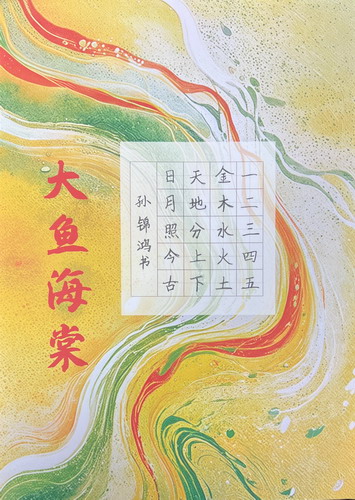 一二三四五
金木水火土
天地分上下
日月照今古
孙锦鸿书
大鱼海棠